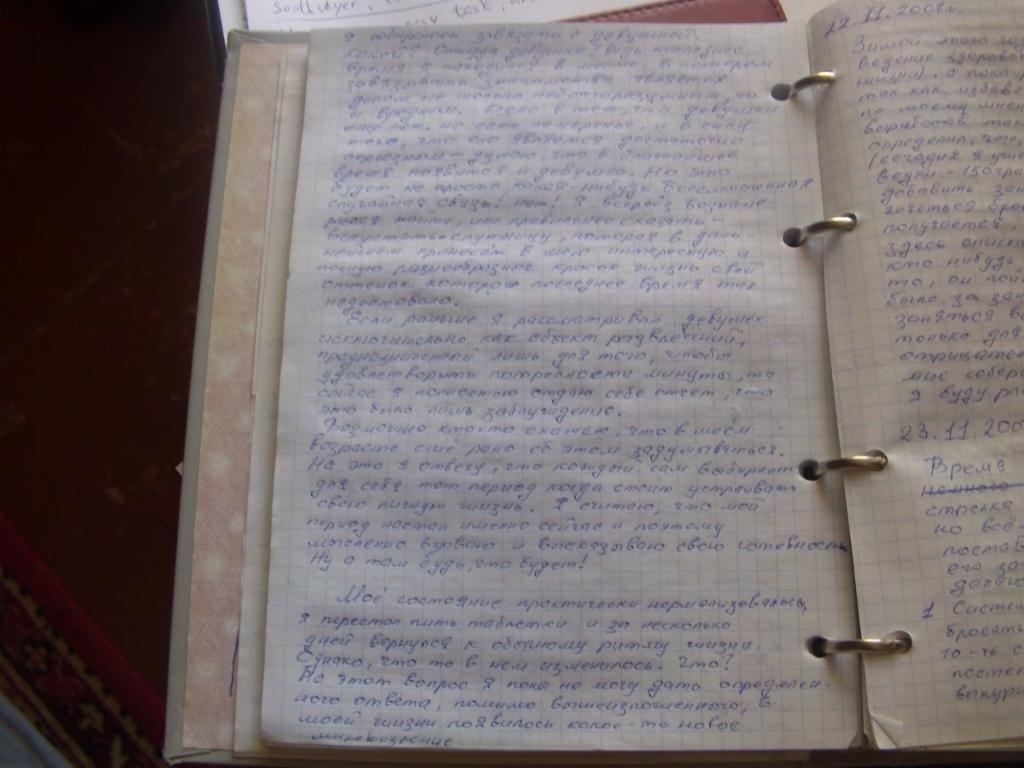 я собираюсь завязать с девушкой.
какой? Откуда девушка? Ведь последнее
время я находился в месте, в котором
завязывать знакомства является
делом не только неблагоразумным, но
и вредным. Дело в том, что девушки
ещё нет, но есть намеренье, и в силу
того, что оно является достаточно
серьезным – думаю, что в ближайшее
время появится и девушка. Но это
будет не просто какая нибудь бессмысленная
случайная связь! Нет! Я всерьёз вознаме-
рился найти, или правильнее сказать –
встретить спутницу, которая в даль-
нейшем принесёт в мою интересную и
полную разнообразных красок жизнь свой
оттенок которого последнее время так
недоставало.
Если раньше я рассматривал девушек
исключительно как объект развлечений,
предназначенный лишь для того, чтобы
удовлетворить потребности минуты, то
сейчас я полностью отдаю себе отчет, что
это было лишь заблуждение.
Возможно кто то скажет, что в моём
возрасте ещё рано об этом задумываться.
На это я отвечу, что каждый сам выбирает
для себя тот период когда стоит устраивать
свою личную жизнь. Я считаю, что мой
период настал именно сейчас и поэтому
мысленно взываю и высказываю свою готовность
Ну а там будь, что будет!
Моё состояние практически нормализовалось,
я перестал пить таблетки и за несколько
дней вернулся к обычному ритму жизни.
Однако, что то в нем изменилось. Что?
На этот вопрос я пока не могу дать определен-
ного ответа, помимо вышеизложенного, в
моей жизни появилось какое-то новое
мировоззрение
22.11.2008г.
Зимой этого
ведение здоровой
жизни). а пока
так как избав
по моему мнен
выработав так
определил, что,
(сегодня я
водки – 150гра
добавить зан
хочеться бро
получается,
здесь описа
кто нибудь
то, он пой
было за зан
заняться
только для
отрицател
мне собер
я буду
23.11.200
Время
немного
стрелка
но всё
постав
его за
делаю
1 Систем
бросать
10-ть с
постеп
выкури